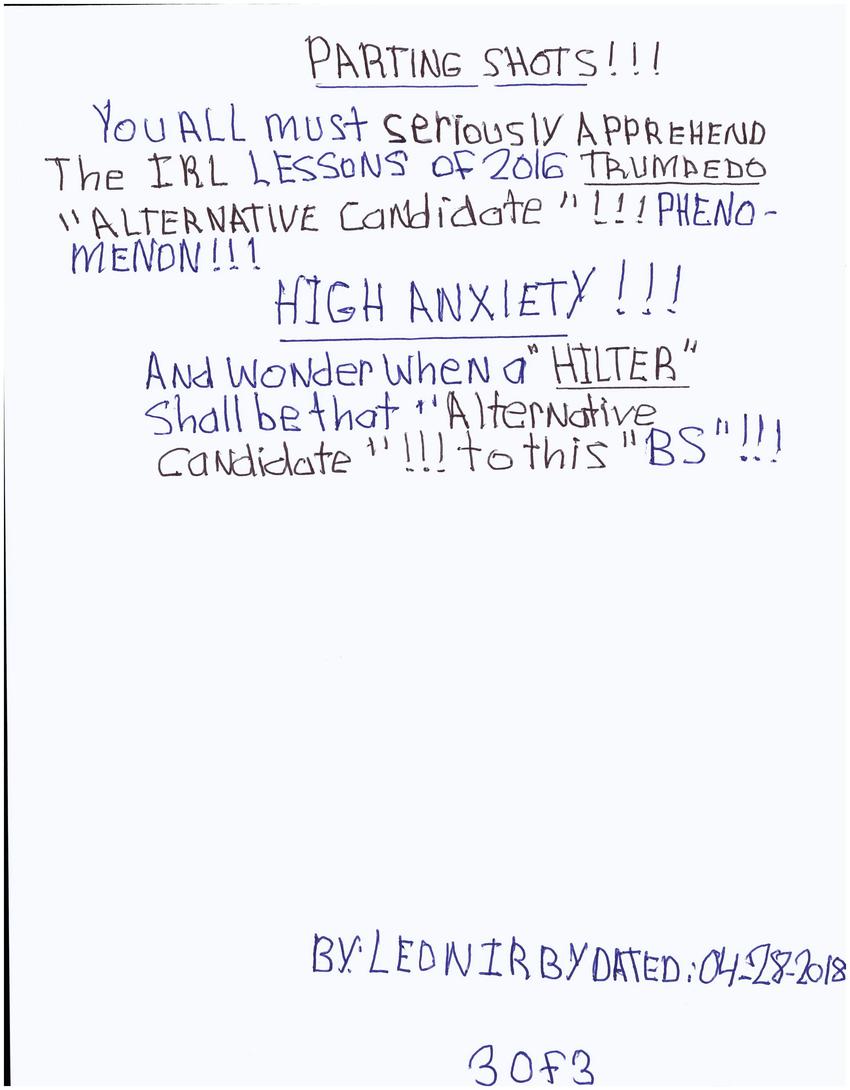 PARTING SHOTS!!!
You ALL must seriously APPREHEND
The IRL LESSONS OF 2016 TRUMPEDO
"ALTERNATIVE Candidate"!!! PHENO-
MENON!!!
HIGH ANXIETY!!!
And Wonder When a "HILTER"
Shall be that "Alternative
Candidate"!!! to this "BS"!!!
BY: LEONIRBY DATED: 04-28-2018
3 OF 3